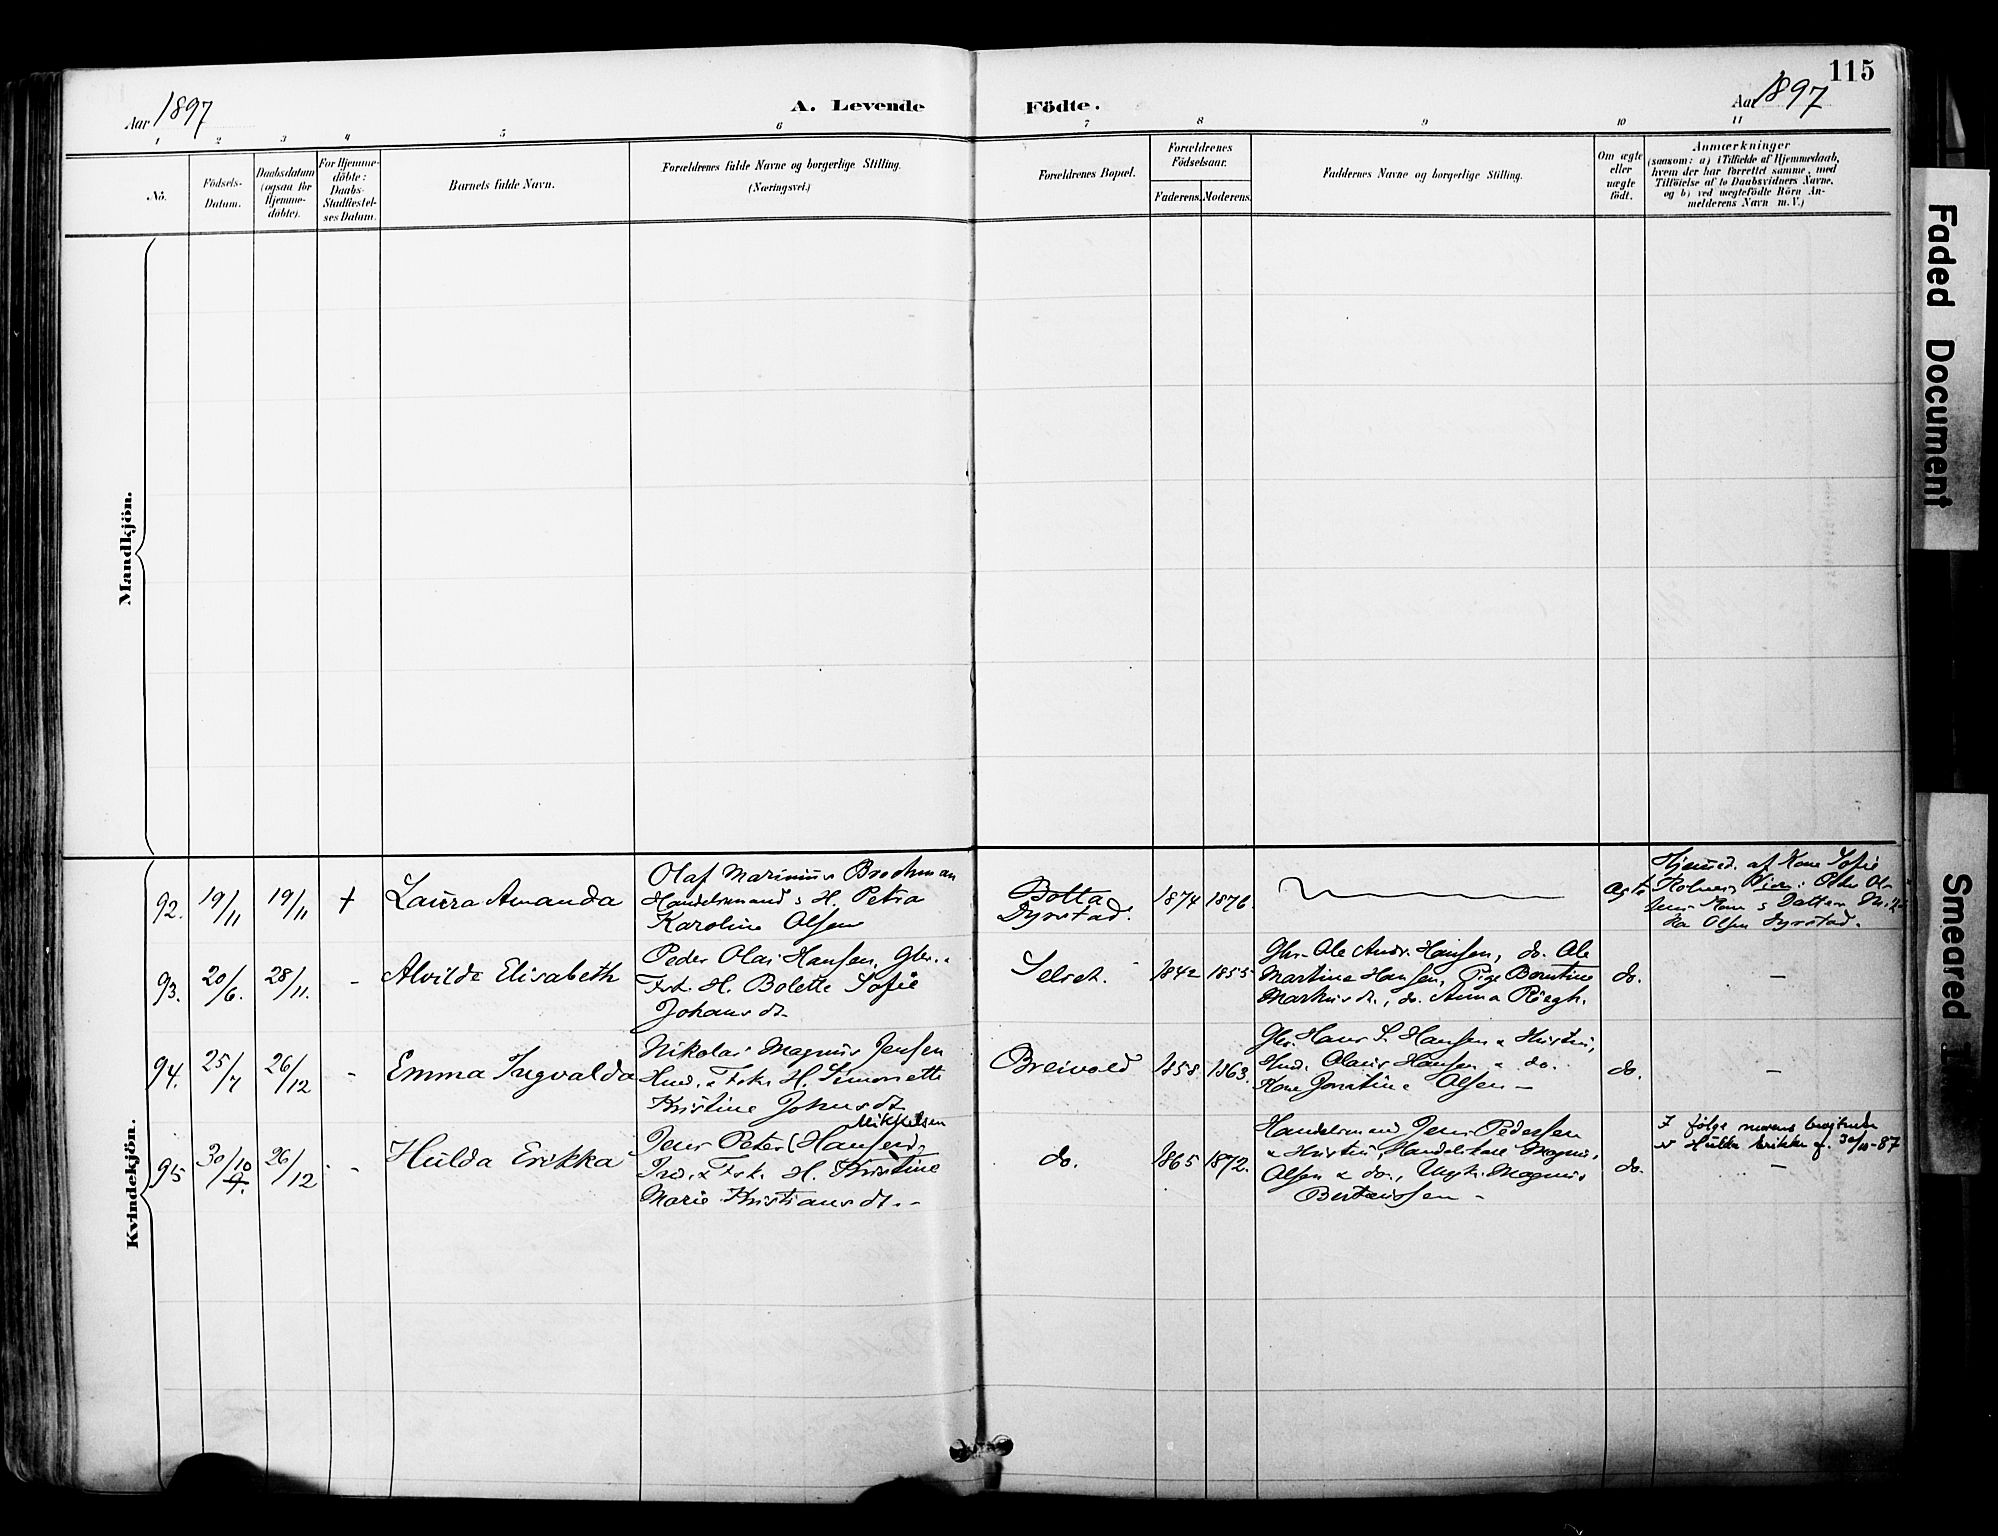 115
Aar 1897
A. Levende Födte.
Aar 1897
1 2 3 4 5 6 7 8 9 10 11
No.
Födsels-
Datum.
Daabsdatum
(ogsaa for
Hjemme-
döbte).
For Hjemme-
döbte:
Daabs-
Stadfæstel-
ses Datum.
Barnets fulde Navn.
Forældrenes fulde Navne og borgerlige Stilling.
(Næringsvei.)
Forældrenes Bopæl.
Forældrenes
Födselsaar.
Faderens. Moderens.
Faddernes Navne og borgerlige Stilling.
Om ægte
eller
uægte
födt.
Anmærkninger
(saasom: a) i Tilfælde af Hjemmedaab,
hvem der har forrettet samme, med
Tilföielse af to Daabsvidners Navne,
og b) ved uægtefödte Börn An-
melderens Navn m. V.)
Mandkjön.
Kvindekjön.
92.
19/11
19/11
+
Laura Amanda
Olaf Marinius Brochman
Handelsmand & H. Petra
Karoline Olsen
Botta
Dyrstad.
1874
1876.
Ægte
Hjemmed. af Kone Sofie
Olsen Dyrstad.
93.
20/6.
28/11.
-
Alvilde Elisabeth
Peder Olai Hansen, Gbr. &
Fsk. H. Bolette Sofie
Johansdt.
Selset.
1842
1855
Gbr. Ole Andr. Hansen, do. Ole
Martinus Hansen, Pige Berntine
Markusdt., do. Anna Röegh.
do.
-
94.
25/7
26/12
-
Emma Ingvalda
Nikolai Magnus Jensen
Ind. & Fsk. H. Simonette
Kristine Johnsdt.
Breivold
1858
1863.
Gbr. Hans S. Hansen & Hustru,
Ind. Olaus Hansen & do.
Kone Jonetine Olsen -
do.
-
95
30/10
9.
26/12
-
Hulda Erikka
Mikkelsen
Jens Peter (Hansen),
Ind. & Fsk. H. Kristine
Marie Kristiansdt. -
do.
1865
1872.
Handelsmand Jens Pedersen
& Hustru, Handelskone Magnus
Olsen & do., Ungk. Magnus
Berteussen -
do.
I følge morens
v Hulda Erikka f. 30/10-87
-
Faded Document
Smeared